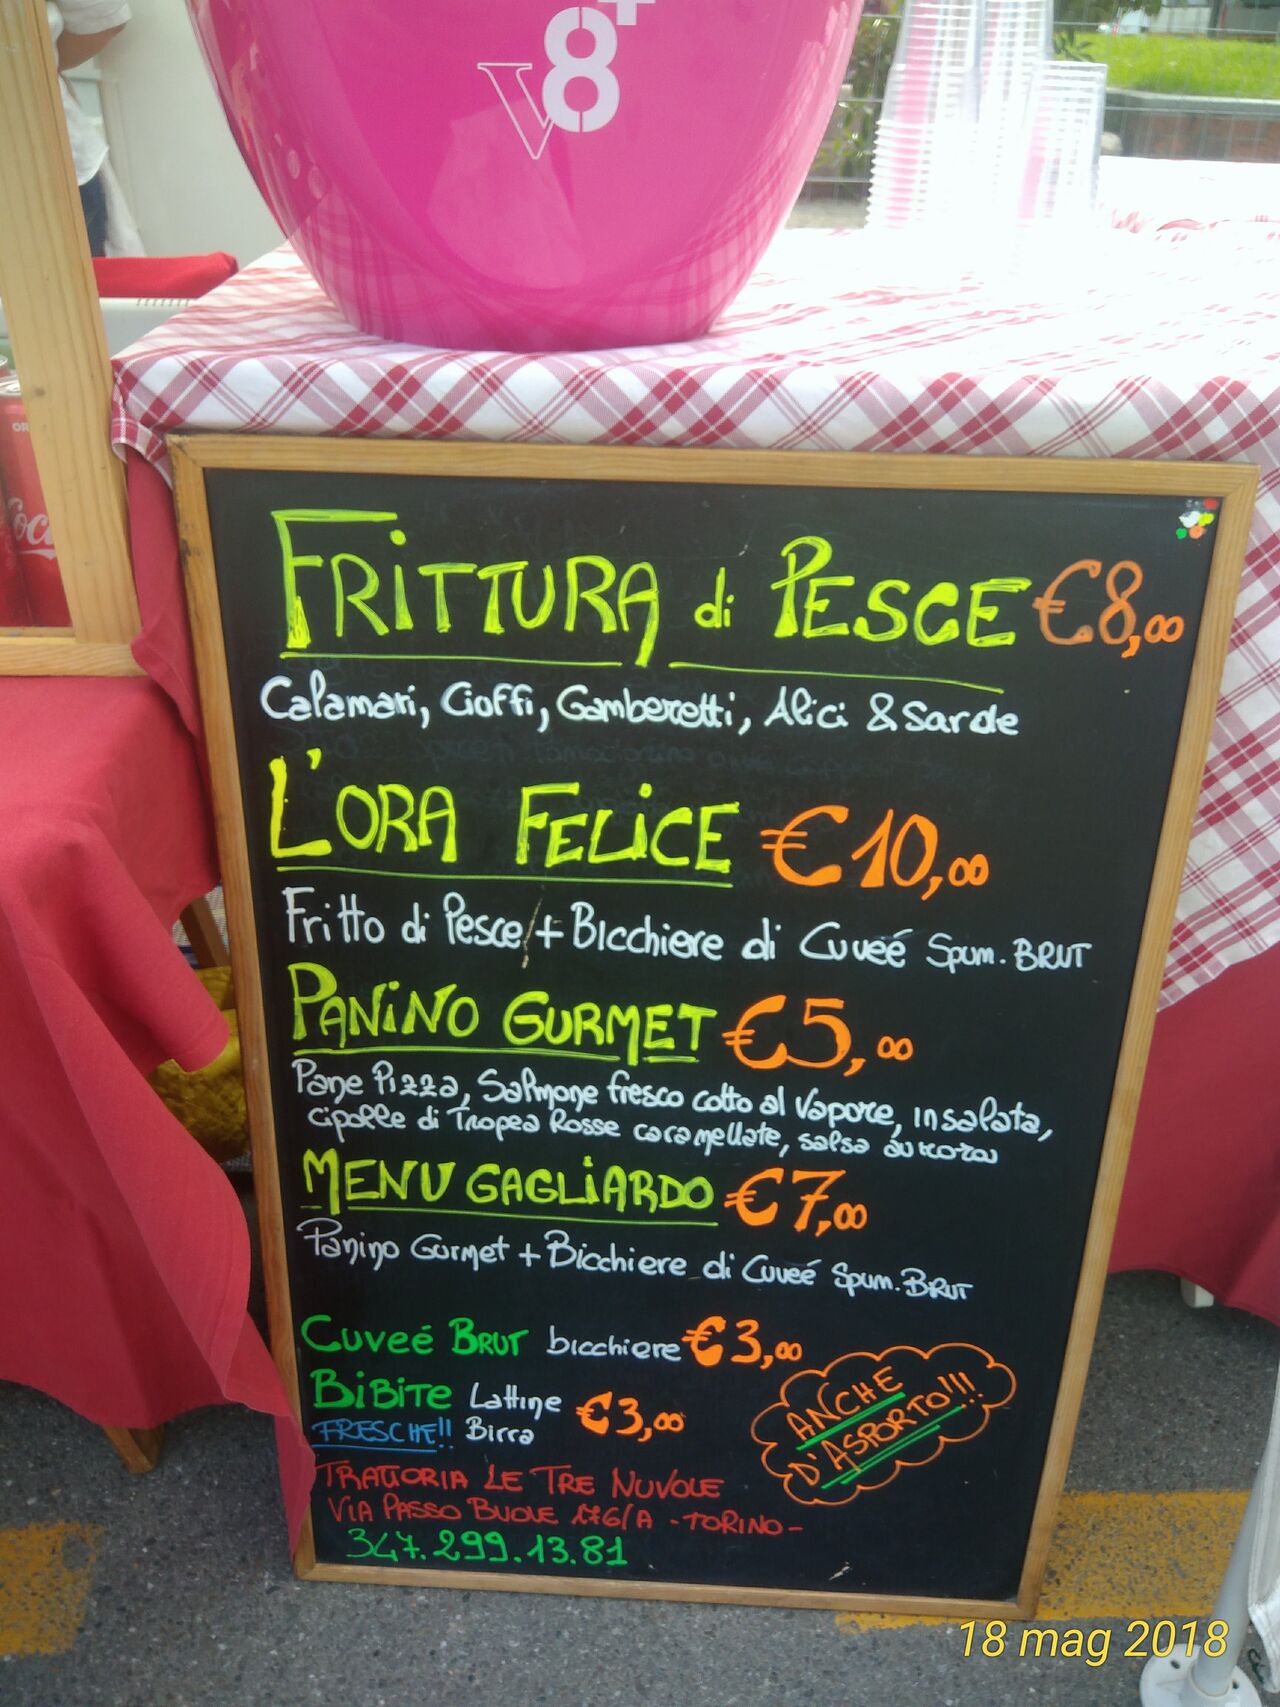 V8+
Coc
FRITTURA di PESCE €8,00
Calamari, Cioffi, Gamberetti, Alici & Sarde
L'ORA FELICE €10,00
Fritto di Pesce + Bicchiere di Cuveé Spum. BRUT
PANINO GURMET €5,00
Pane Pizza, Salmone fresco cotto al Vapore, insalata,
cipolle di Tropea Rosse caramellate, salsa aurora
MENU GAGLIARDO €7,00
Panino Gurmet + Bicchiere di Cuveé Spum. BRUT
CUVEÉ BRUT bicchiere €3,00
BIBITE Lattine €3,00
FRESCHE!! Birra
ANCHE
D'ASPORTO!!!
TRATTORIA LE TRE NUVOLE
VIA PASSO BUOLE 176/A - TORINO -
347.299.13.81
18 mag 2018